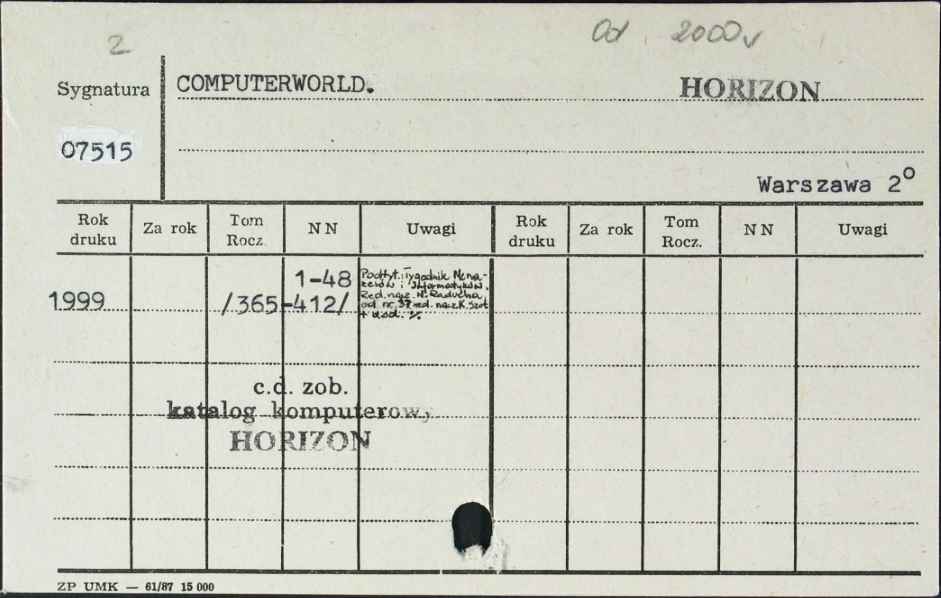 2 Od 2000
Sygnatura COMPUTERWORLD. HORIZON
07515
Warszawa 2°
Rok druku Za rok Tom Rocz. N N Uwagi Rok druku Za rok Tom Rocz. N N Uwagi
1999 1-48 /365-412/
Podtyt.: Tygodnik Mena-
żerów i Informatyków.
Red. nacz. M. Raducha,
od nr. 37 red. nacz. K. Szot
+ dod. %
c.d. zob.
katalog komputerowy
HORIZON
ZP UMK — 61/87 15 000